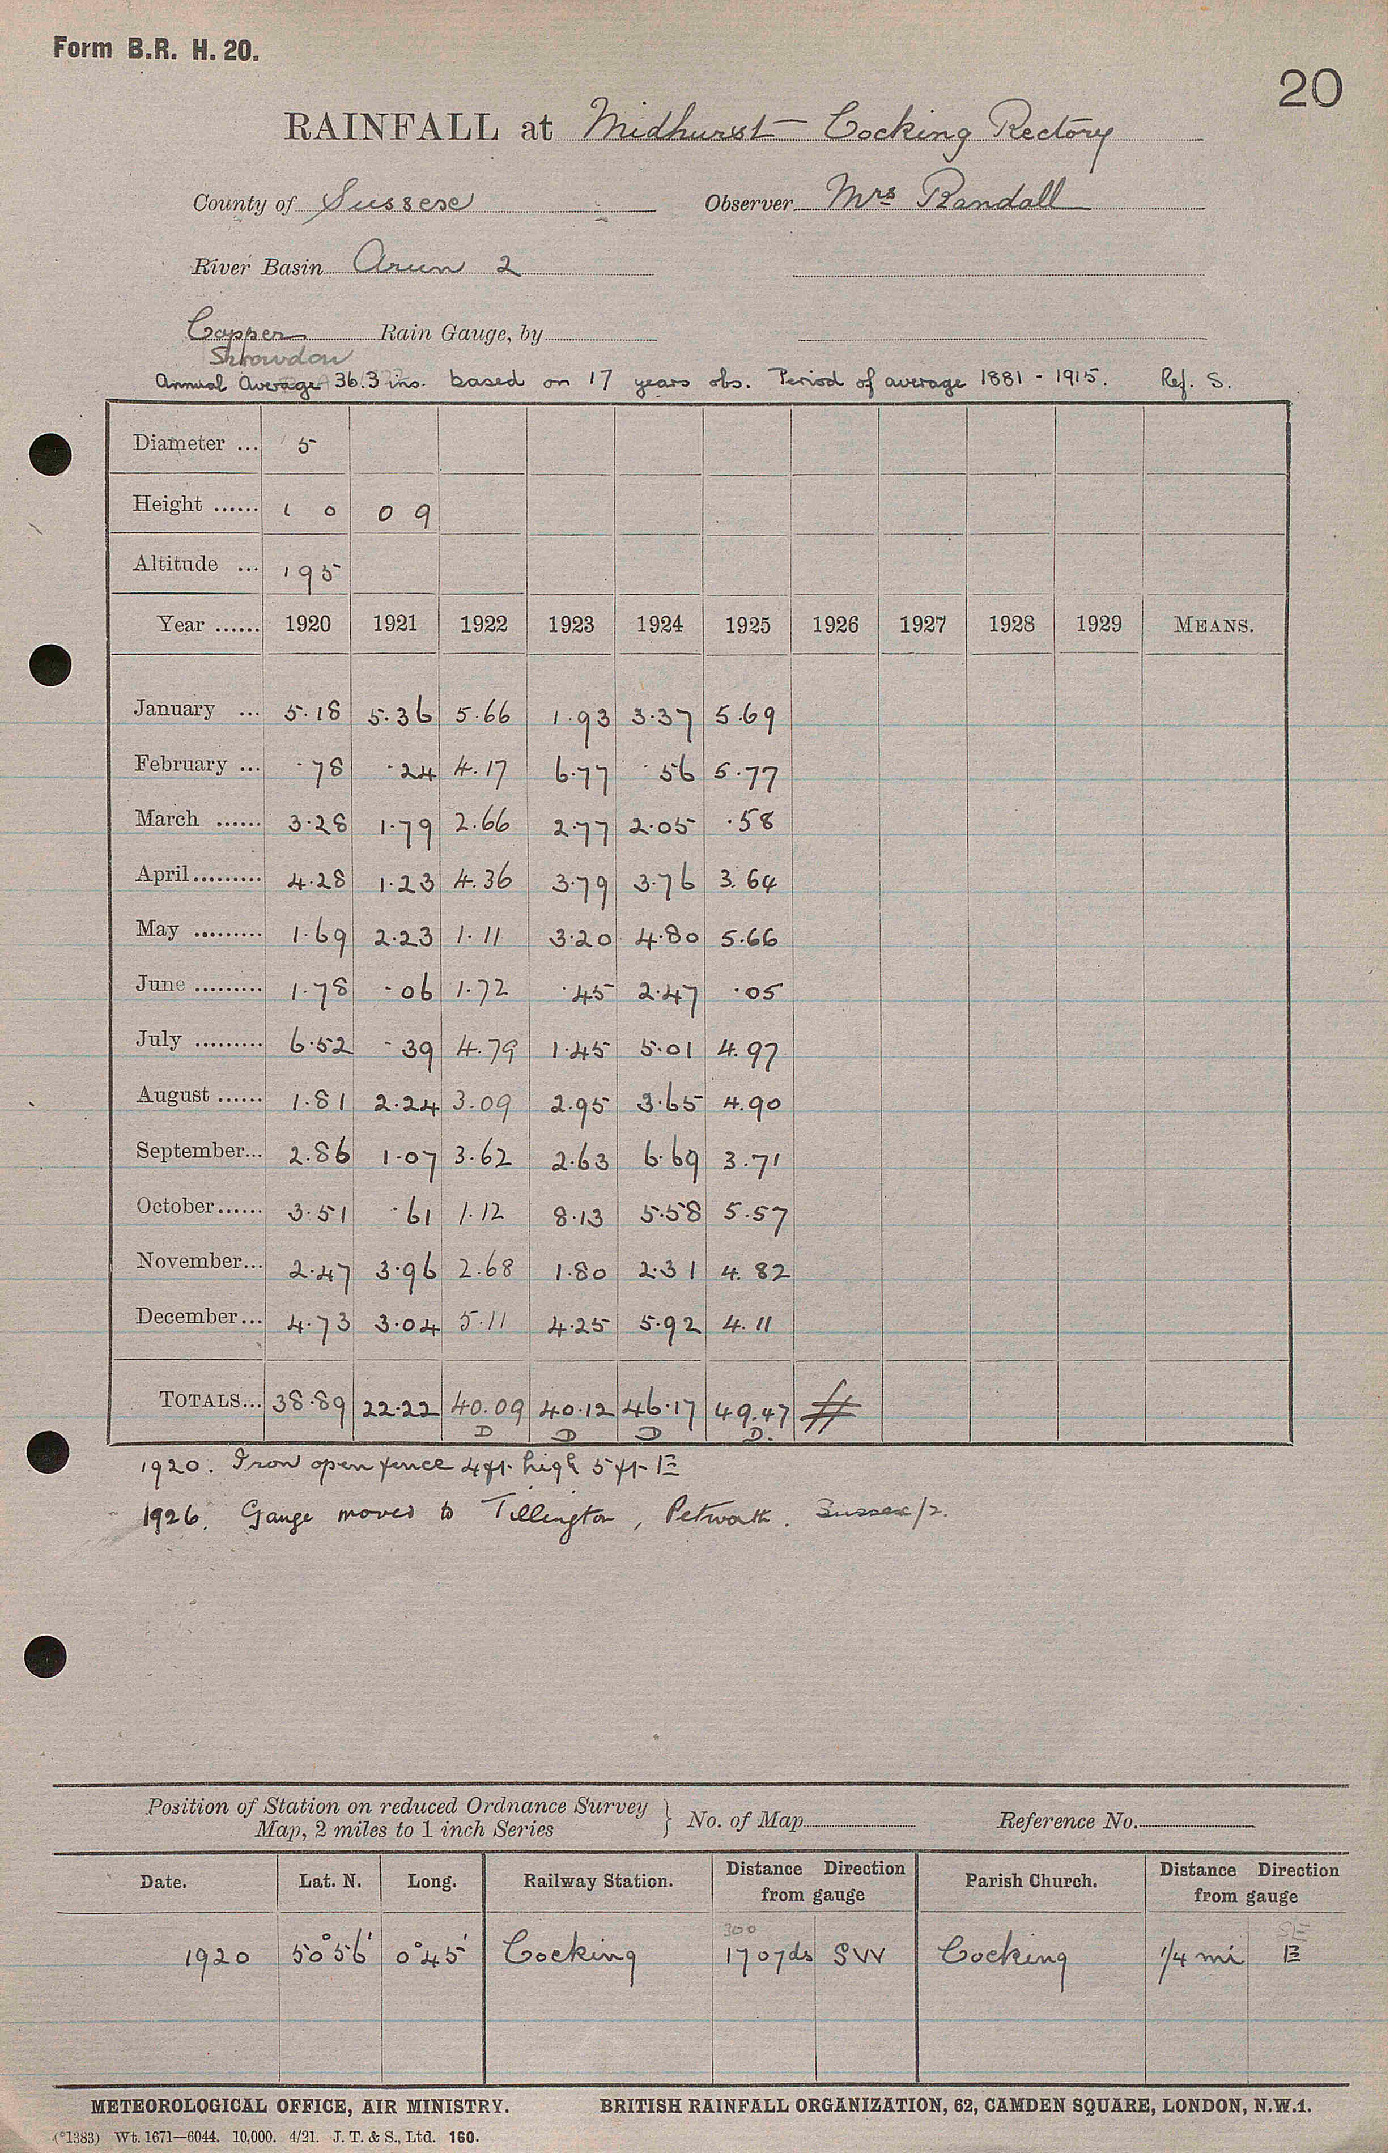 Form B.R. H. 20.
20
RAINFALL at Midhurst - Cocking Rectory
County of Sussex Observer Mrs Randall
River Basin Arun 2
Copper Rain Gauge, by
Snowdon
Annual Average 36.3 ins. based on 17 years obs. Period of average 1881 - 1915. Ref. S.
Diameter ... 5
Height ...... 1 0 0 9
Altitude ... 195
Year ...... 1920 1921 1922 1923 1924 1925 1926 1927 1928 1929 MEANS.
January ... 5.18 5.36 5.66 1.93 3.37 5.69
February ... .78 .24 4.17 6.77 .56 5.77
March ...... 3.28 1.79 2.66 2.77 2.05 .58
April ......... 4.28 1.23 4.36 3.79 3.76 3.64
May ......... 1.69 2.23 1.11 3.20 4.80 5.66
June ......... 1.78 .06 1.72 .45 2.47 .05
July ......... 6.52 .39 4.79 1.45 5.01 4.97
August ...... 1.81 2.24 3.09 2.95 3.65 4.90
September... 2.86 1.07 3.62 2.63 6.69 3.71
October...... 3.51 .61 1.12 8.13 5.58 5.57
November... 2.47 3.96 2.68 1.80 2.31 4.82
December... 4.73 3.04 5.11 4.25 5.92 4.11
TOTALS... 38.89 22.22 40.09 40.12 46.17 49.47
D D D D.
1920. Iron open fence 4ft. high 5 ft. E
1926. Gauge moved to Tillington, Petworth. Sussex/2.
Position of Station on reduced Ordnance Survey Map, 2 miles to 1 inch Series } No. of Map Reference No.
Date. Lat. N. Long. Railway Station. Distance Direction from gauge Parish Church. Distance Direction from gauge
300 SE
1920 50°56' 0°45' Cocking 170yds SW Cocking 1/4 mi E
METEOROLOGICAL OFFICE, AIR MINISTRY. BRITISH RAINFALL ORGANIZATION, 62, CAMDEN SQUARE, LONDON, N.W.1.
(*1383) Wt. 1671—6044. 10,000. 4/21. J. T. & S., Ltd. 160.